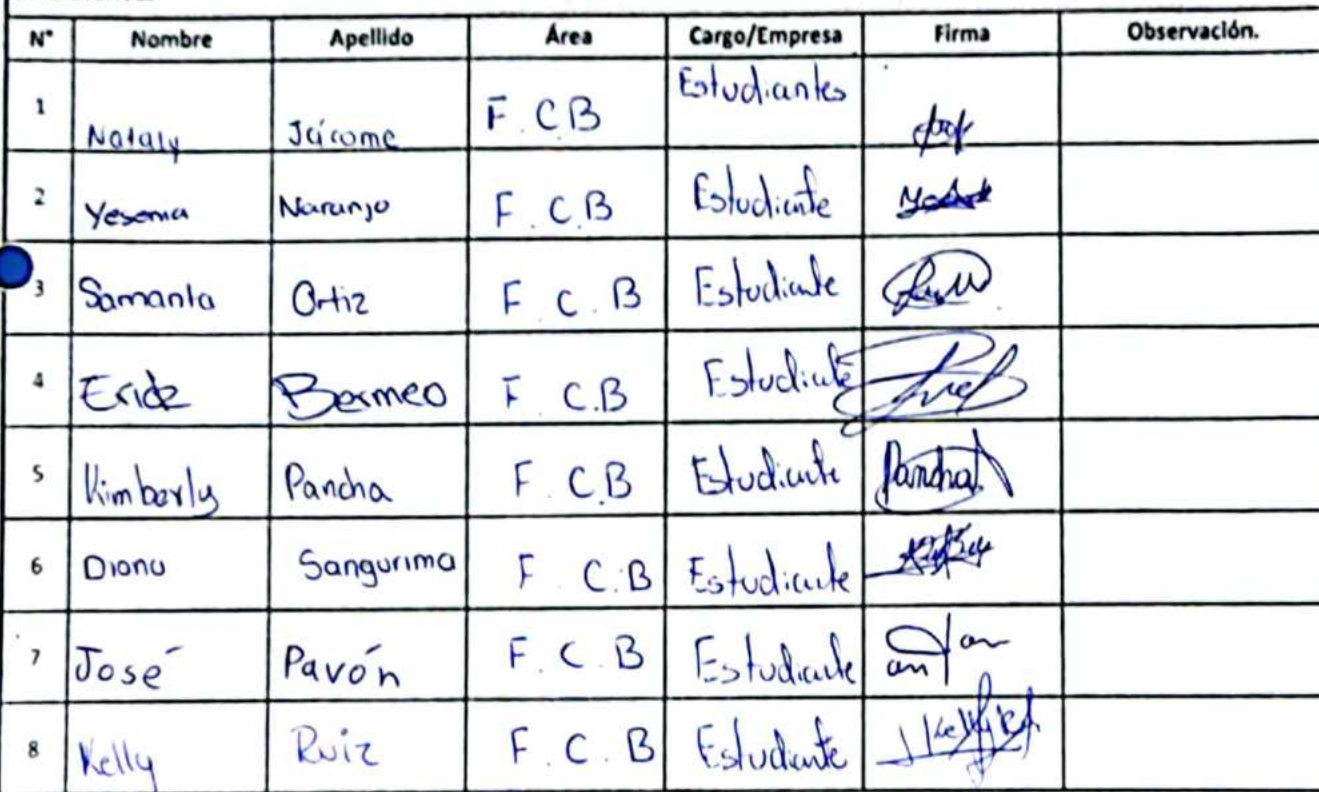 N° Nombre Apellido Área Cargo/Empresa Firma Observación.
1 Nataly Jácome F. C.B Estudiantes
2 Yesenia Naranjo F. C.B Estudiante
3 Samanta Ortiz F. C. B Estudiante
4 Bermeo F. C.B Estudiante
5 Kimberly Pancha F. C.B Estudiante Pancha
6 Diana Sangurima F. C.B Estudiante
7 José Pavón F. C. B Estudiante
8 Kelly Ruiz F. C. B Estudiante